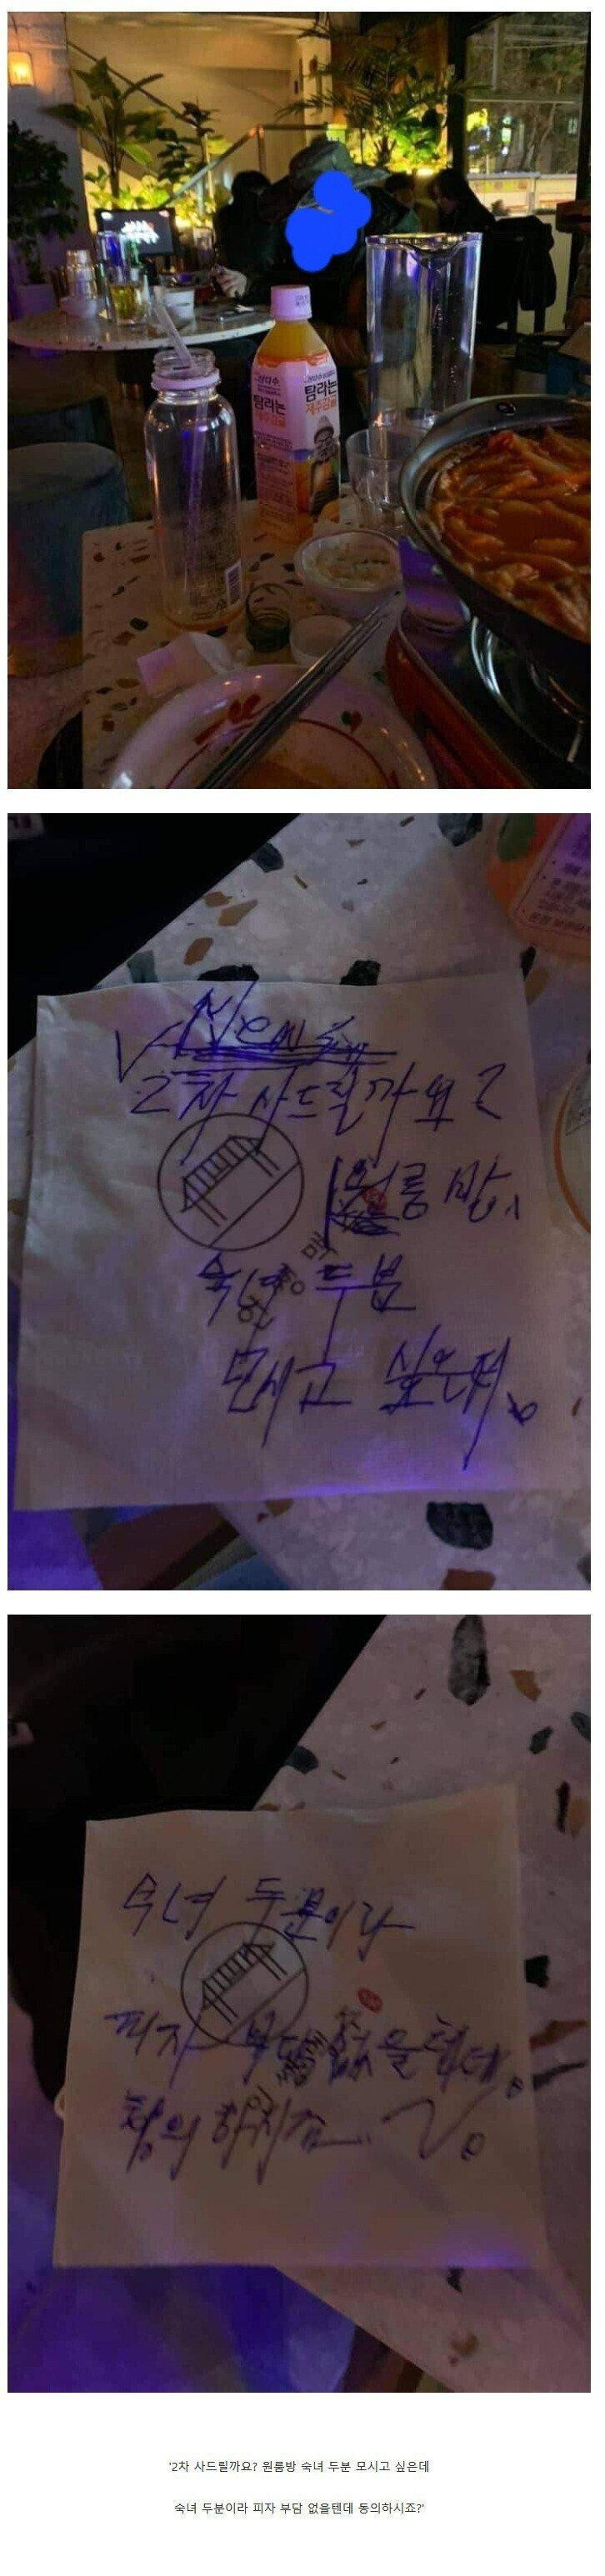 탐라는
제주감귤
탐라는
제주감귤
2차 사드릴까요?
원룸 방,
숙녀 두분
모시고 싶은데
숙녀 두분이라
피자 부담 없을텐데
'2차 사드릴까요? 원룸방 숙녀 두분 모시고 싶은데
숙녀 두분이라 피자 부담 없을텐데 동의하시죠?'